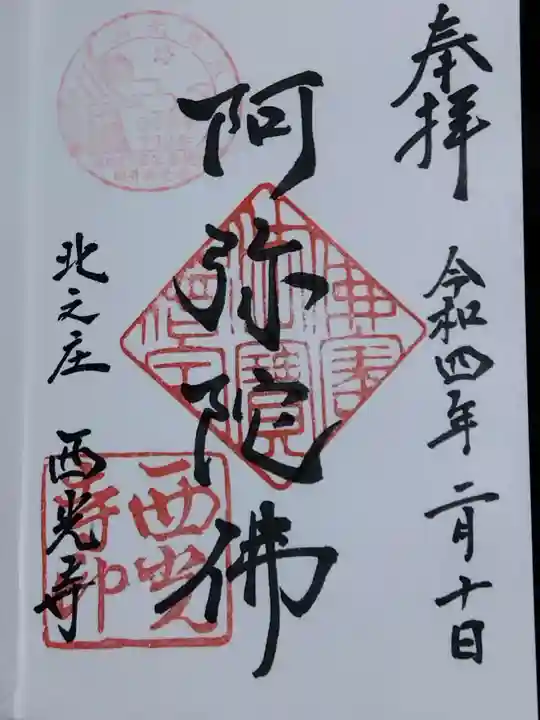 奉拝
令和四年二月十日
阿弥陀佛
北之庄
西光寺
西光
寺印